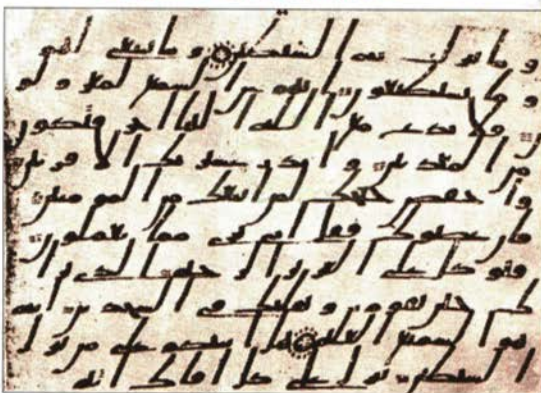 وما تنزلت به الشيطين وما ينبغي لهم
وما يستطيعون انهم عن السمع لمعزولو
ن فلا تدع مع الله الها اخر فتكون
من المعذبين وانذر عشيرتك الاقربين
واخفض جناحك لمن اتبعك من المومنين
فان عصوك فقل اني بري مما تعملون
فتوكل على العزيز الرحيم الذي يرا
ك حين تقوم وتقلبك في السجدين انه
هو السميع العليم هل انبيكم على من تنزل
الشيطين تنزل على كل افاك اثيم